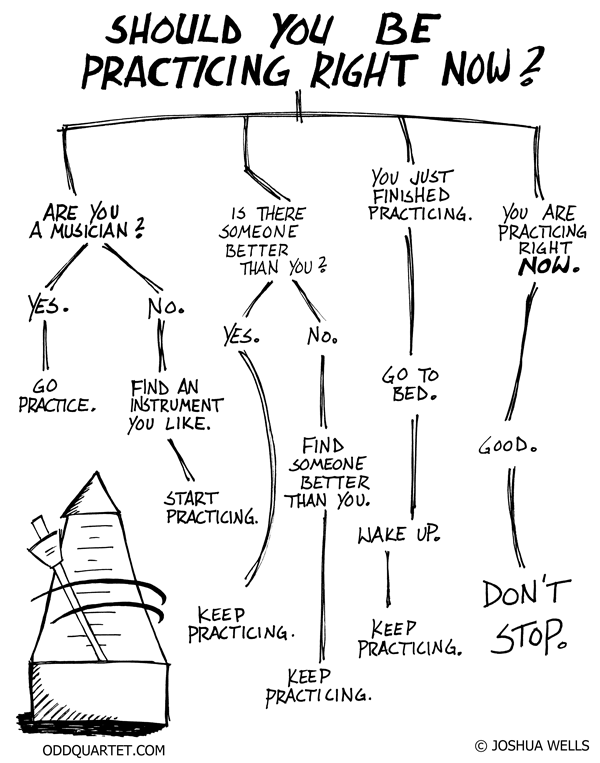 SHOULD YOU BE
PRACTICING RIGHT NOW?
ARE YOU
A MUSICIAN?
YES.
GO
PRACTICE.
NO.
FIND AN
INSTRUMENT
YOU LIKE.
START
PRACTICING.
IS THERE
SOMEONE
BETTER
THAN YOU?
YES.
KEEP
PRACTICING.
NO.
FIND
SOMEONE
BETTER
THAN YOU.
KEEP
PRACTICING.
YOU JUST
FINISHED
PRACTICING.
GO TO
BED.
WAKE UP.
KEEP
PRACTICING.
YOU ARE
PRACTICING
RIGHT
NOW.
GOOD.
DON'T
STOP.
ODDQUARTET.COM
© JOSHUA WELLS